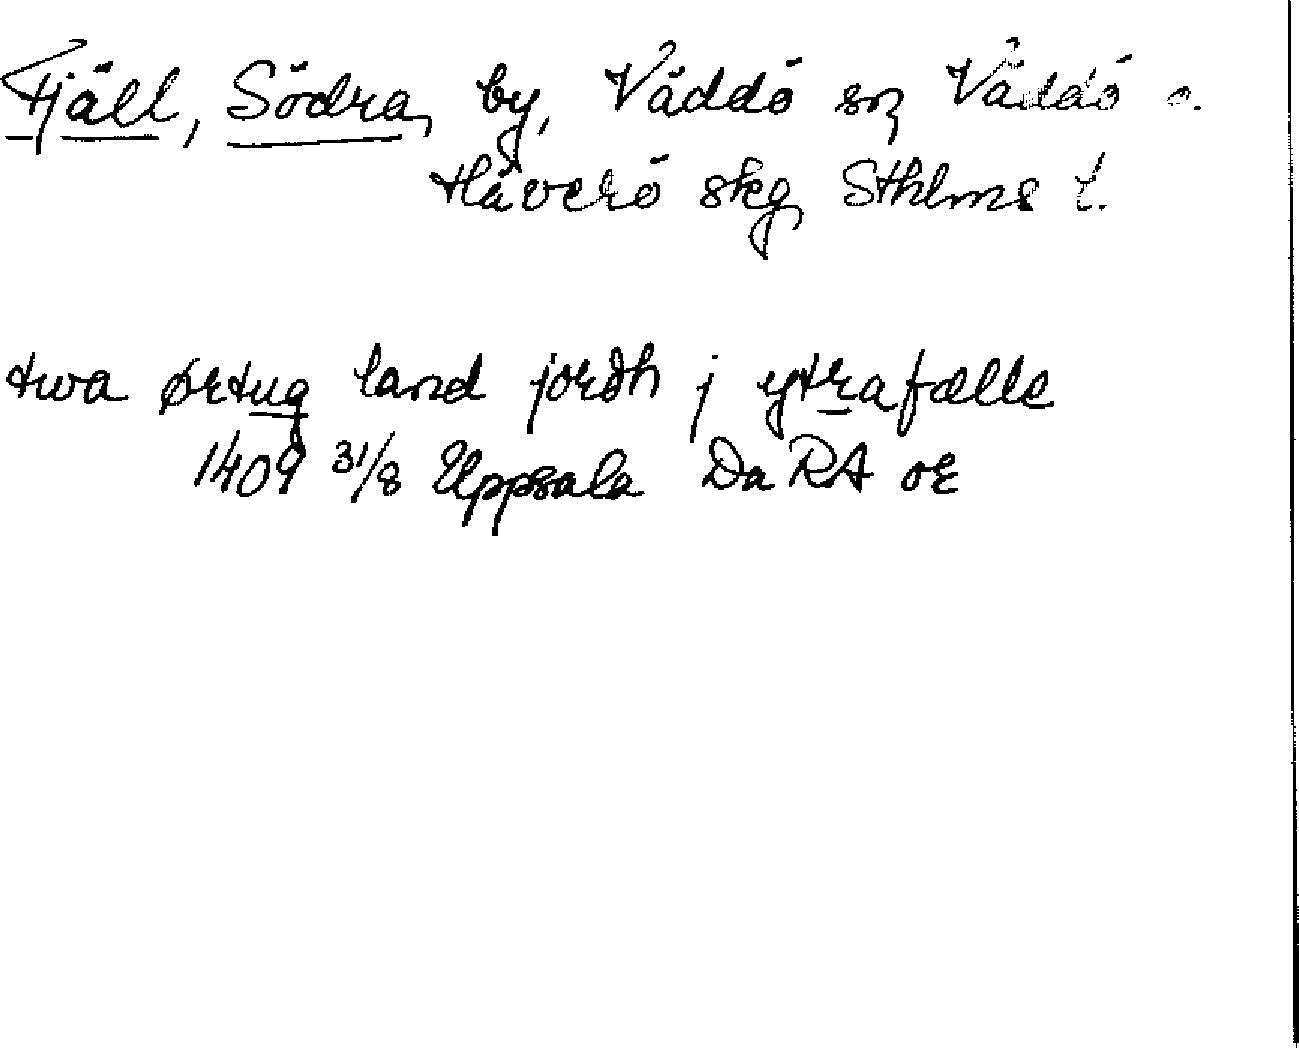 Fjäll, Södra, by, Väddö sn, Väddö o.
Häverö skg, Sthlms l.
twa ørtug land jordh j ytrafælle
1409 31/8 Uppsala Da RA or